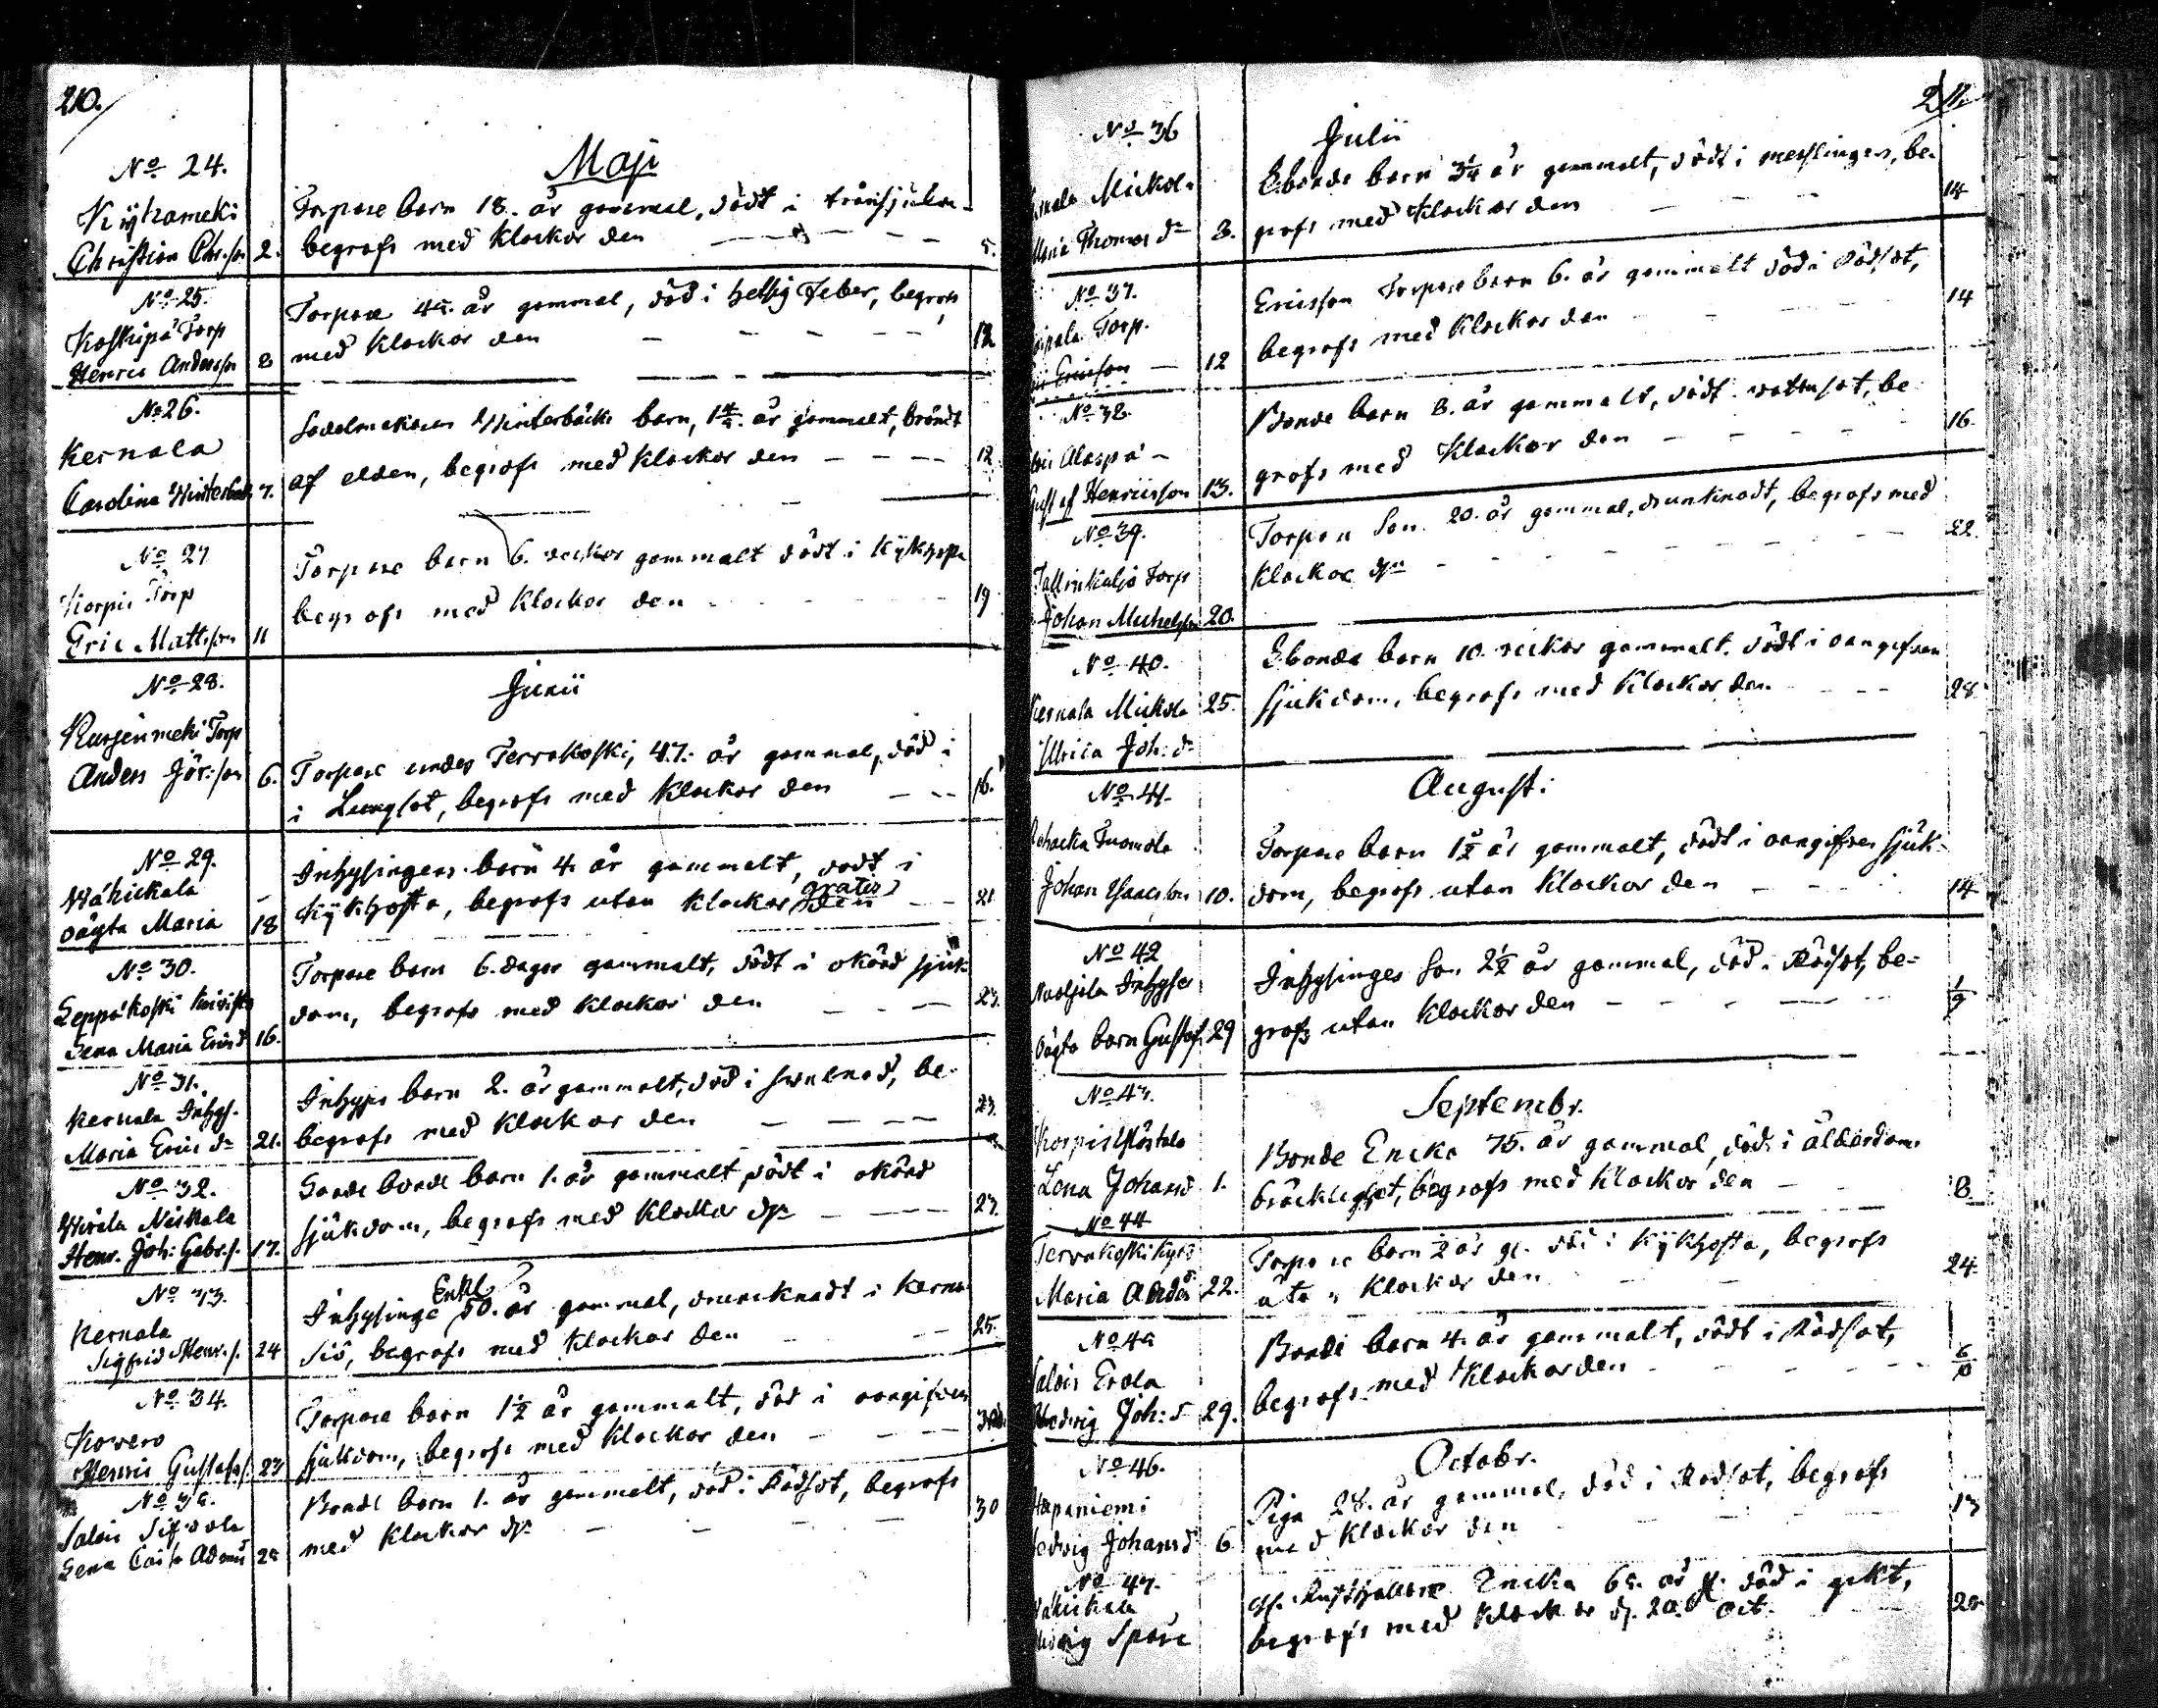 210.
Maji
No 24.
Kyhameki
Christian Chr:son 2.
Torpare barn 18. år gammal, dödt i tränsjukan
begrofs med klockor den 5.
No 25.
Koskipä Torp
Henric Andersson 8
Torpare 45. år gammal, död i hetsig Feber, begrofs
med klockor den 12
No 26.
Kernala
Carolina Winterbäck 7.
Sadelmakaren Winterbäcks barn, 1 år gammalt, brändt
af elden, begrofs med klockor den 12
No 27
Korpis Torp
Eric Mattsson 11
Torpare barn 6. veckor gammalt dödt i Kykhosta
begrofs med klockor den 19
Junii
No 28.
Kurjenmeki Torp
Anders Jör:son 6.
Torpare under Terrakoski, 47. år gammal, död i
i Lungsot, begrofs med klockor den 16.
No 29.
Wähickala
oägta Maria 18
Inhysinges barn 4 år gammalt, dödt i
Kykhosta, begrofs utan klockor gratis den 21
No 30.
Leppäkoski Knivisto
Lena Maria Ericsd 16.
Torpare barn 6. dagar gammalt, dödt i okänd sjuk-
dom, begrofs med klockor den 23.
No 31.
Kernala Inhys.
Maria Erics dr 21.
Inhyses barn 2. år gammalt, död i swulnad, be-
begrofs med klockor den 23.
No 32.
Wirala Niskala
Henr. Joh: Gabr.s. 17.
bonde barn 1. år gammalt dödt i okänd
sjukdom, begrofs med klockor dn 23.
No 33.
Kernala
Sigfrid Henr.s. 24
Inhysinge Enkl. 50. år gammal, drunknadt i Kerna
Siö, begrofs med klockor den 25.
No 34.
Kowero
Henric Gustafs. 23
Torpare barn 1 1/2 år gammalt, död i oangifven
sjukdom, begrofs med klockor den 30.
No 35.
Salois Sifvola
Lena Caisa Adamsd 25
Bonde barn 1. år gammalt, död i Rödsot, begrofs
med klockor dn 30
211.
Julii
No 36
Mickola
Maria Thomas dr 8.
Ebonde barn 3 1/4 år gammalt, dödt i messlingen, be-
grofs med klockor den 14
No 37.
Torp.
Ericsson 12
Ericsson Torpare barn 6. år gammalt död i Rödsot,
begrofs med klockor den 14
No 38.
Alaspä
Gustaf Henricsson 13.
Bonde barn 8. år gammalt, dödt i watusot, be
grofs med klockor den 16.
No 39.
Torp
Johan Michelsson 20.
Torpare Son 20. år gammal, drunknadt, begrofs med
klockor dn 22.
No 40.
Kernala Mickola 25.
Ulrica Joh: dr
Ebonde barn 10. veckor gammalt, dödt i oangifven
sjukdom, begrofs med klockor den 28.
Augusti
No 41.
Tuomola
Johan Isaacsson 10.
Torpare barn 1 1/2 år gammalt, dödt i oangifven sjuk-
dom, begrofs utan klockor den 14
No 42
Inhyses
oägta barn Gustaf 29
Inhysinges son 2 1/2 år gammal, död i Rödsot, be-
grofs utan klockor den 1/9
Septembr.
No 43.
Korpis Ylöstalo
Lena Johansd 1.
Bonde Encka 75. år gammal, död i ålderdoms
bräcklighet, begrofs med klockor den 8
No 44
Terrakoski
Maria Andersd 22.
Torpare barn 1/2 år gl. död i Kykhosta, begrofs
utan klockor den 24.
No 45
Salois Erola
Hedwig Joh: d 29.
Bonde barn 4. år gammalt, dödt i Rödsot,
begrofs med klockor den 6/10
Octobr.
No 46.
Hapaniemi
Hedvig Johansd 6
Piga 28. år gammal, död i Rödsot, begrofs
med klockor den 13
No 47.
Wähickala
Hedvig Spåre
Gl. Rusthållare Encka 65. år gl. död i gikt,
begrofs med klockor d. 20. Oct. 20